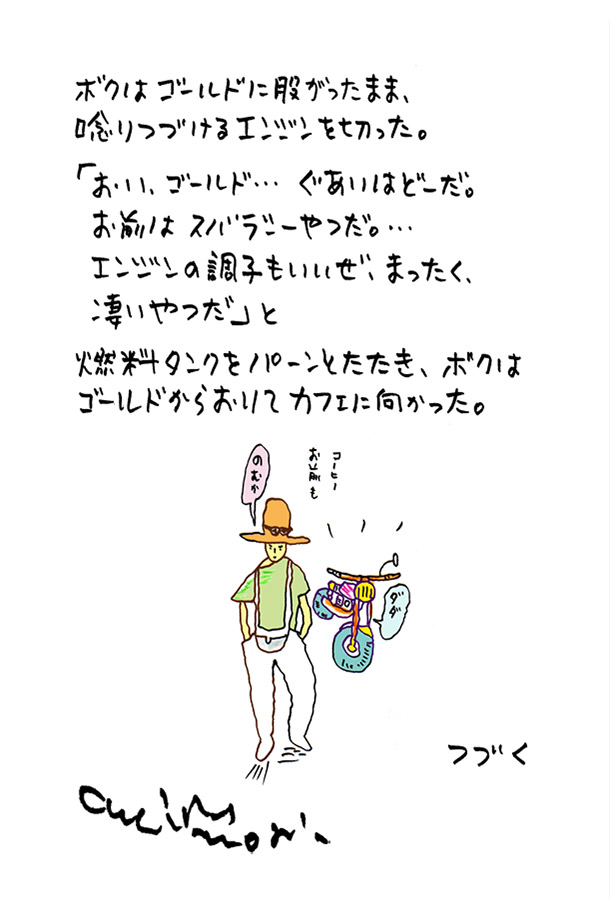 ボクはゴールドに股がったまま、
唸りつづけるエンジンを切った。
「おいい、ゴールド… ぐあいはどーだ。
お前は スバラシーやつだ。…
エンジンの調子もいいぜ、まったく、
凄いやつだ」と
燃料タンクをパーンとたたき、ボクは
ゴールドからおりて カフェに向かった。
のむか
コーヒー
お前も
ダダ
つづく